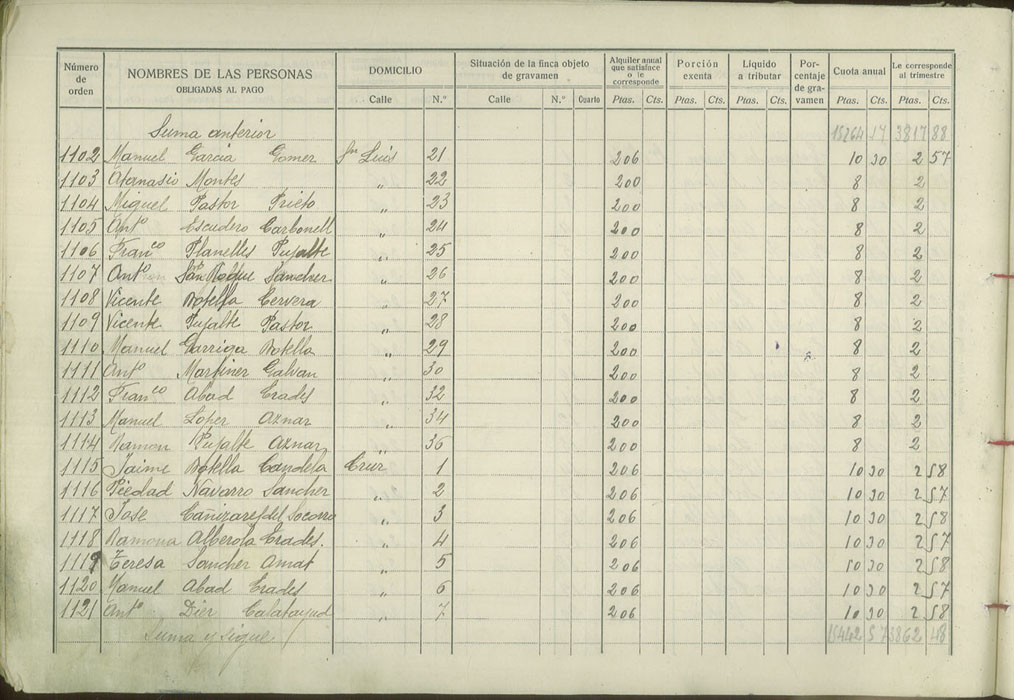 Número de orden | NOMBRES DE LAS PERSONAS OBLIGADAS AL PAGO | DOMICILIO | Situación de la finca objeto de gravamen | Alquiler anual que satisface o le corresponde | Porción exenta | Líquido a tributar | Porcentaje de gravamen | Cuota anual | Le corresponde al trimestre
Calle | N.º | Calle | N.º | Cuarto | Ptas. | Cts. | Ptas. | Cts. | Ptas. | Cts. | Ptas. | Cts. | Ptas. | Cts.
Suma anterior 15264 17 3817 88
1102 Manuel Garcia Gomez Sn Luis 21 206 10 30 2 57
1103 Atanasio Montes " 22 200 8 2
1104 Miguel Pastor Prieto " 23 200 8 2
1105 Antº Escudero Carbonell " 24 200 8 2
1106 Franco Planelles Pujalte " 25 200 8 2
1107 Antº San Roque Sanchez " 26 200 8 2
1108 Vicente Botella Cervera " 27 200 8 2
1109 Vicente Pujalte Pastor " 28 200 8 2
1110 Manuel Garriga Botella " 29 200 8 2
1111 Antº Martinez Galvan " 30 200 8 2
1112 Franco Abad Crades " 32 200 8 2
1113 Manuel Lopez Aznar " 34 200 8 2
1114 Ramon Pujalte Aznar " 36 200 8 2
1115 Jaime Botella Candela Cruz 1 206 10 30 2 58
1116 Piedad Navarro Sanchez " 2 206 10 30 2 57
1117 Jose Cañizares del Socorro " 3 206 10 30 2 58
1118 Ramona Alberola Crades. " 4 206 10 30 2 57
1119 Teresa Sanchez Amat " 5 206 10 30 2 58
1120 Manuel Abad Crades " 6 206 10 30 2 57
1121 Antº Diez Calatayud " 7 206 10 30 2 58
Suma y sigue 15442 57 3862 48